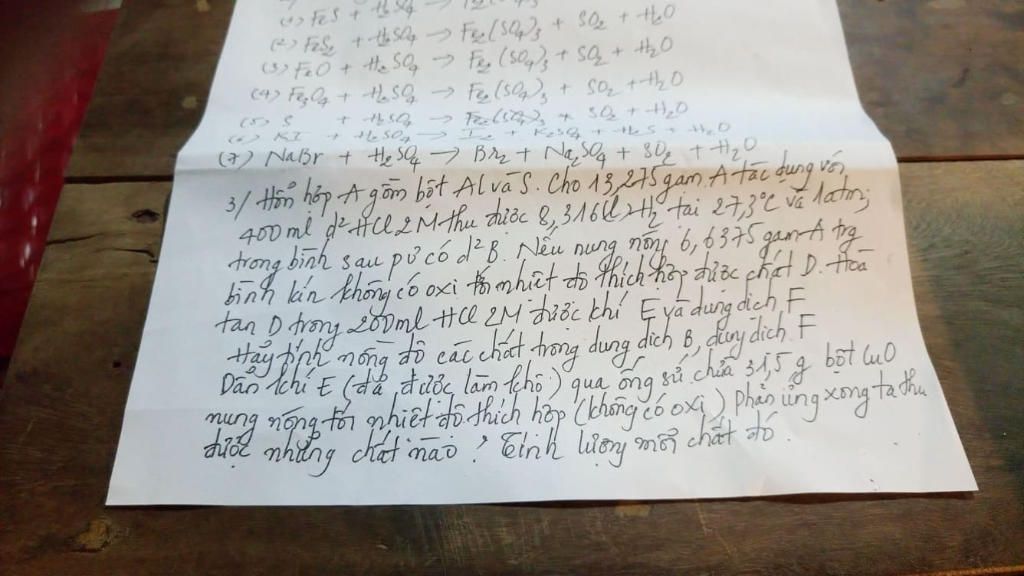 (1) FeS + H2SO4 → Fe2(SO4)3 + SO2 + H2O
(2) FeS2 + H2SO4 → Fe2(SO4)3 + SO2 + H2O
(3) FeO + H2SO4 → Fe2(SO4)3 + SO2 + H2O
(4) Fe3O4 + H2SO4 → Fe2(SO4)3 + SO2 + H2O
(5) S + H2SO4 → Fe2(SO4)3 + SO2 + H2O
(6) KI + H2SO4 → I2 + K2SO4 + H2S + H2O
(7) NaBr + H2SO4 → Br2 + Na2SO4 + SO2 + H2O
3/ Hỗn hợp A gồm bột Al và S. Cho 13,275 gam A tác dụng với
400 ml d² HCl 2M thu được 8,316 lít H2 tại 27,3°C và 1atm;
trong bình sau pư có d² B. Nếu nung nóng 6,6375 gam A trg
bình kín không có oxi tới nhiệt độ thích hợp được chất D. Hoà
tan D trong 200ml HCl 2M được khí E và dung dịch F
Hãy tính nồng độ các chất trong dung dịch B, dung dịch F
Dẫn khí E (đã được làm khô) qua ống sứ chứa 31,5 g bột CuO
nung nóng tới nhiệt độ thích hợp (không có oxi) Phản ứng xong ta thu
được những chất nào? Tính lượng mỗi chất đó.